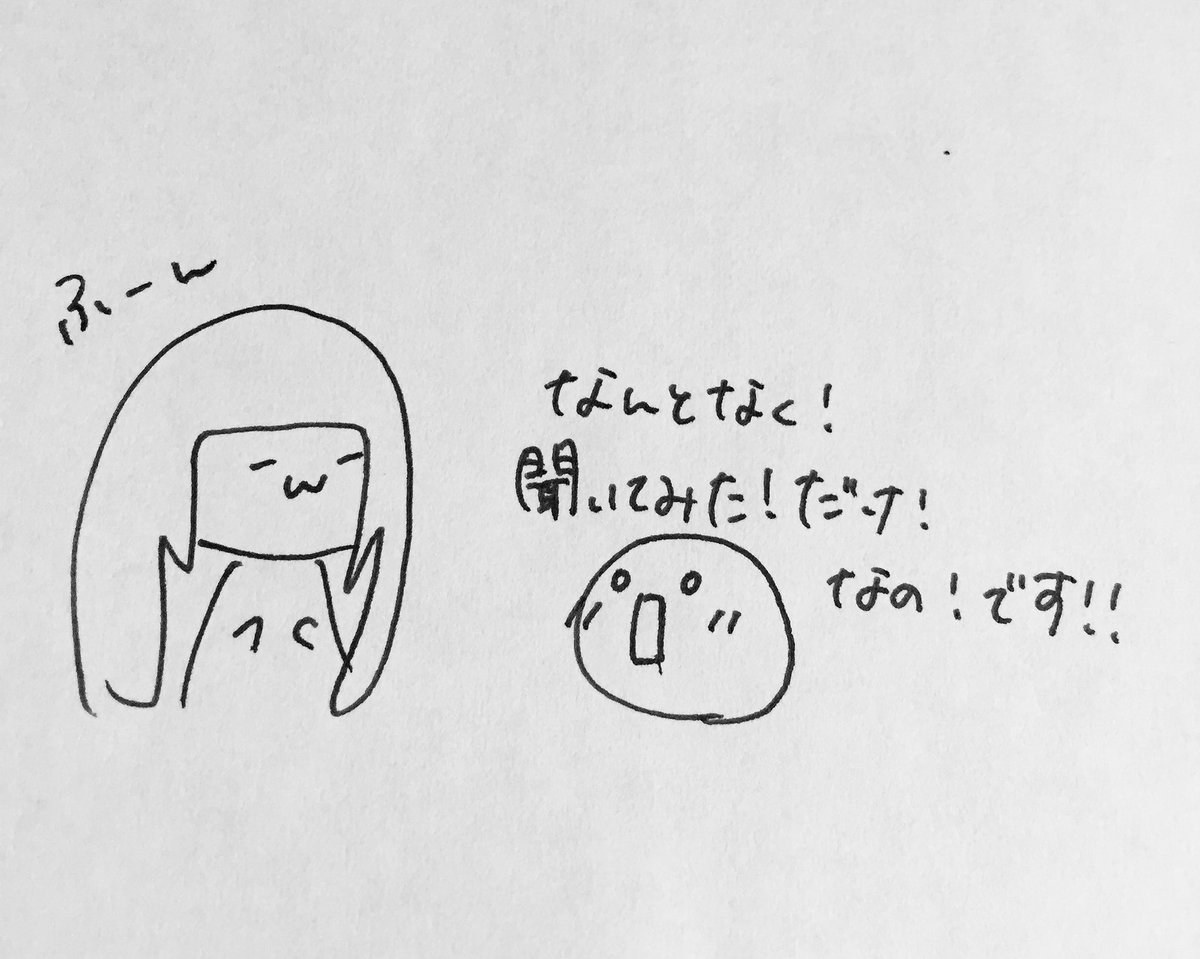 ふーん
なんとなく！
聞いてみた！だけ！
なの！です！！